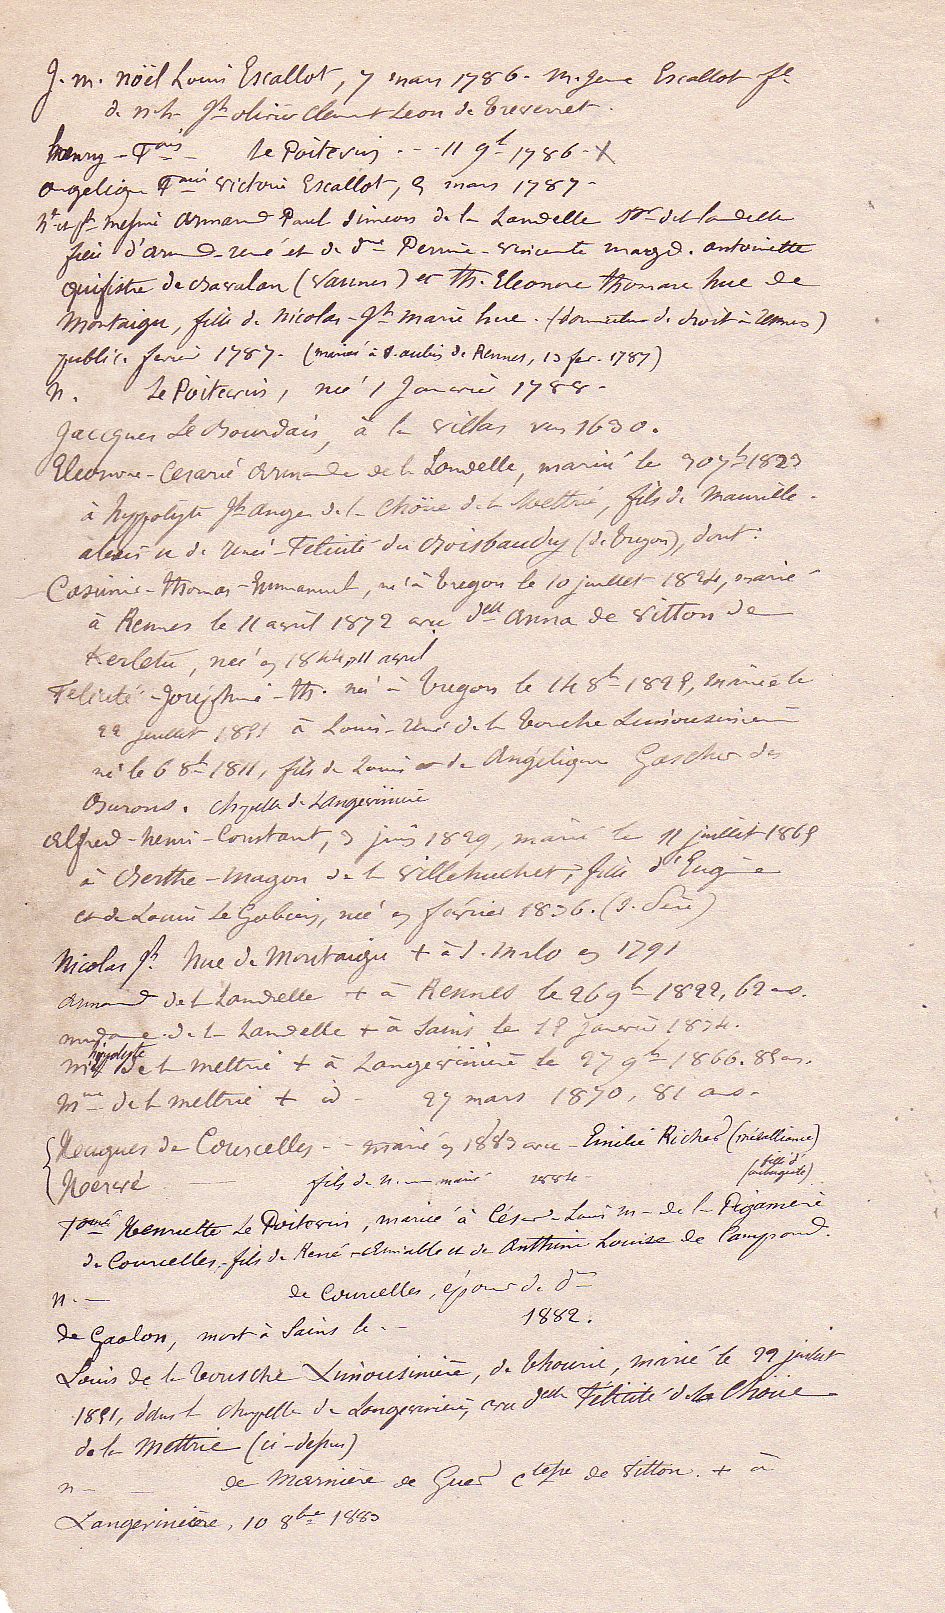 J. m. Nöel Louis Escallot, 7 mars 1786. M. Jene Escallot fe
de n.h. Jh olivier Clement Leon de Treverret.
henry - Fois - Le Poitevin - - - 11 9b 1786 - X
angelique Foise victoire Escallot, 9 mars 1787 -
ht et pt messire Armand Paul Simeon de la Landelle sgr de la Landelle
fils d'Armand-rené et de de Perrine-vincente margd. antoinette
quifistre de Bavalan (Vannes) et th. Eleonore thomase hue de
Montaigu, fille de Nicolas-Jh marie hue. (domicilié de droit à Rennes)
public. fevrier 1787. (mariés à S. aubin de Rennes, 13 fev. 1787)
N. Le Poitevin, né 1 Janvier 1788 -
Jacques Le Bourdais, à la villas vers 1630.
Eleonore-Cesarie Armande de la Landelle, mariée le 30 7b 1823
à hyppolyte Jh Ange de la Choüe de la Mettrie, fils de Maurille -
alexis et de René-Felicité du Boisbaudry (de Tregon), dont:
Casimir-Thomas-Emmanuel, né à Tregon le 10 juillet 1824, marié
à Rennes le 11 avril 1872 avec delle Anna de Vitton de
Kerletu, née en 1844, 11 avril
Felicité-Joséphine-th. née à Tregon le 14 8b 1825, mariée le
22 juillet 1851 à Louis-René de la Tousche Limousinière
né le 6 8b 1811, fils de Louis et de Angélique Gascher des
Burons. chapelle de Langevinière
Alfred-henri-Constant, 3 juin 1829, marié le 11 juillet 1865
à Berthe-Magon de la Villehuchet, fille d'Eugène
et de Louise Le Gobien, née en février 1836. (S. Père)
Nicolas Jh. Hue de Montaigu + à S. Malo en 1791
Armand de la Landelle + à Rennes le 26 9b 1822, 62 ans.
madame de la Landelle + à Sains le 15 janvier 1834.
Mr hippolyte de la Mettrie + à Langevinière le 27 9b 1866. 85 ans.
Mme de la Mettrie + id - 27 mars 1870, 81 ans -
Hengues de Courcelles - - marié en 1883 avec - Emilie Richer (mésalliance)
Hervé fils de N. — marié 1884 (fille d'aubergiste)
Foise Henriette Le Poitevin, mariée à César-Louis M- de la Pigannerie
de Courcelles, fils de René-Aimable et de Anthime Louise de Camprond.
N. — de Courcelles, époux de de
de Gaalon, mort à Sains le - - 1882.
Louis de la Tousche Limousinière, de Thourie, marié le 22 juillet
1851, dans la chapelle de Langevinière, avec delle Félicité de la Choüe
de la Mettrie (ci-dessus)
N - - de Marnière de Guer ctesse de Vitton. + à
Langevinière, 10 8bre 1883